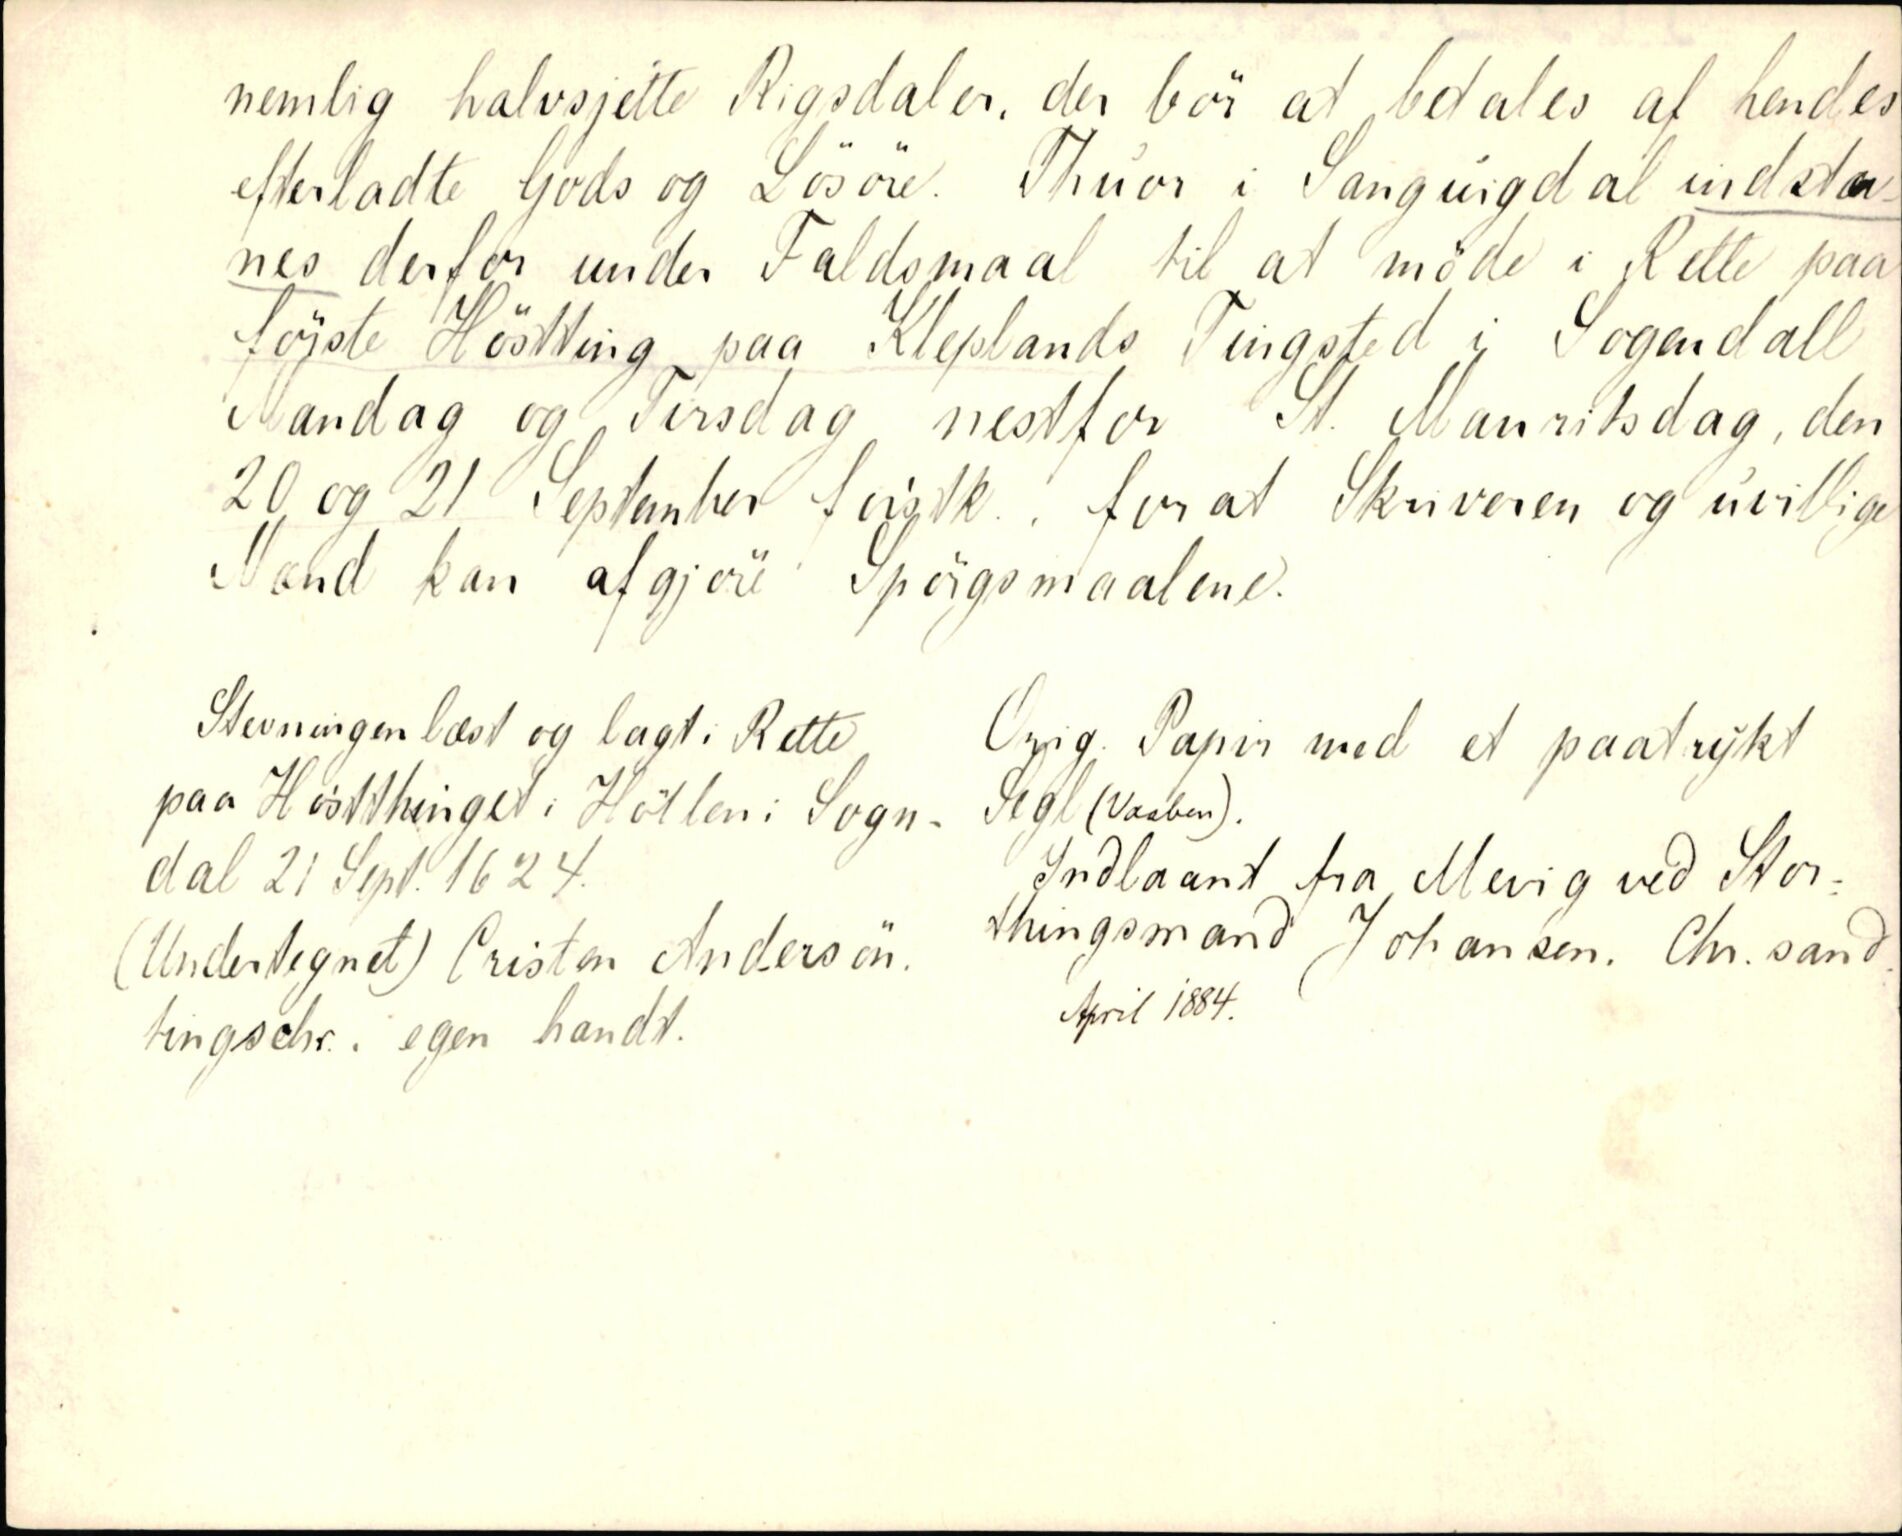 nemlig halvsjette Rigsdaler, der bör at betales af hendes
efterladte Gods og Lösöre. Thuor i Sanguigdal indstæv-
nes derfor under Faldsmaal til at möde i Rette paa
förste Höstting paa Kleplands Tingsted i Sogendall
Mandag og Tirsdag nestfor St. Mauritsdag, den
20 og 21 September förstk., forat Skriveren og uvillige
Mænd kan afgjöre Spörgsmaalene.
Stevningen læst og lagt i Rette
paa Höstthinget i Hölleni Sogn-
dal 21 Sept. 1624.
(Undertegnet) Cristen Andersön.
tingschr. egen handt.
Orig. Papir med et paatrykt
Segl (Vaaben).
Indlaant fra Mevig ved Stor-
thingsmand Johansen. Chr.sand.
April 1884.